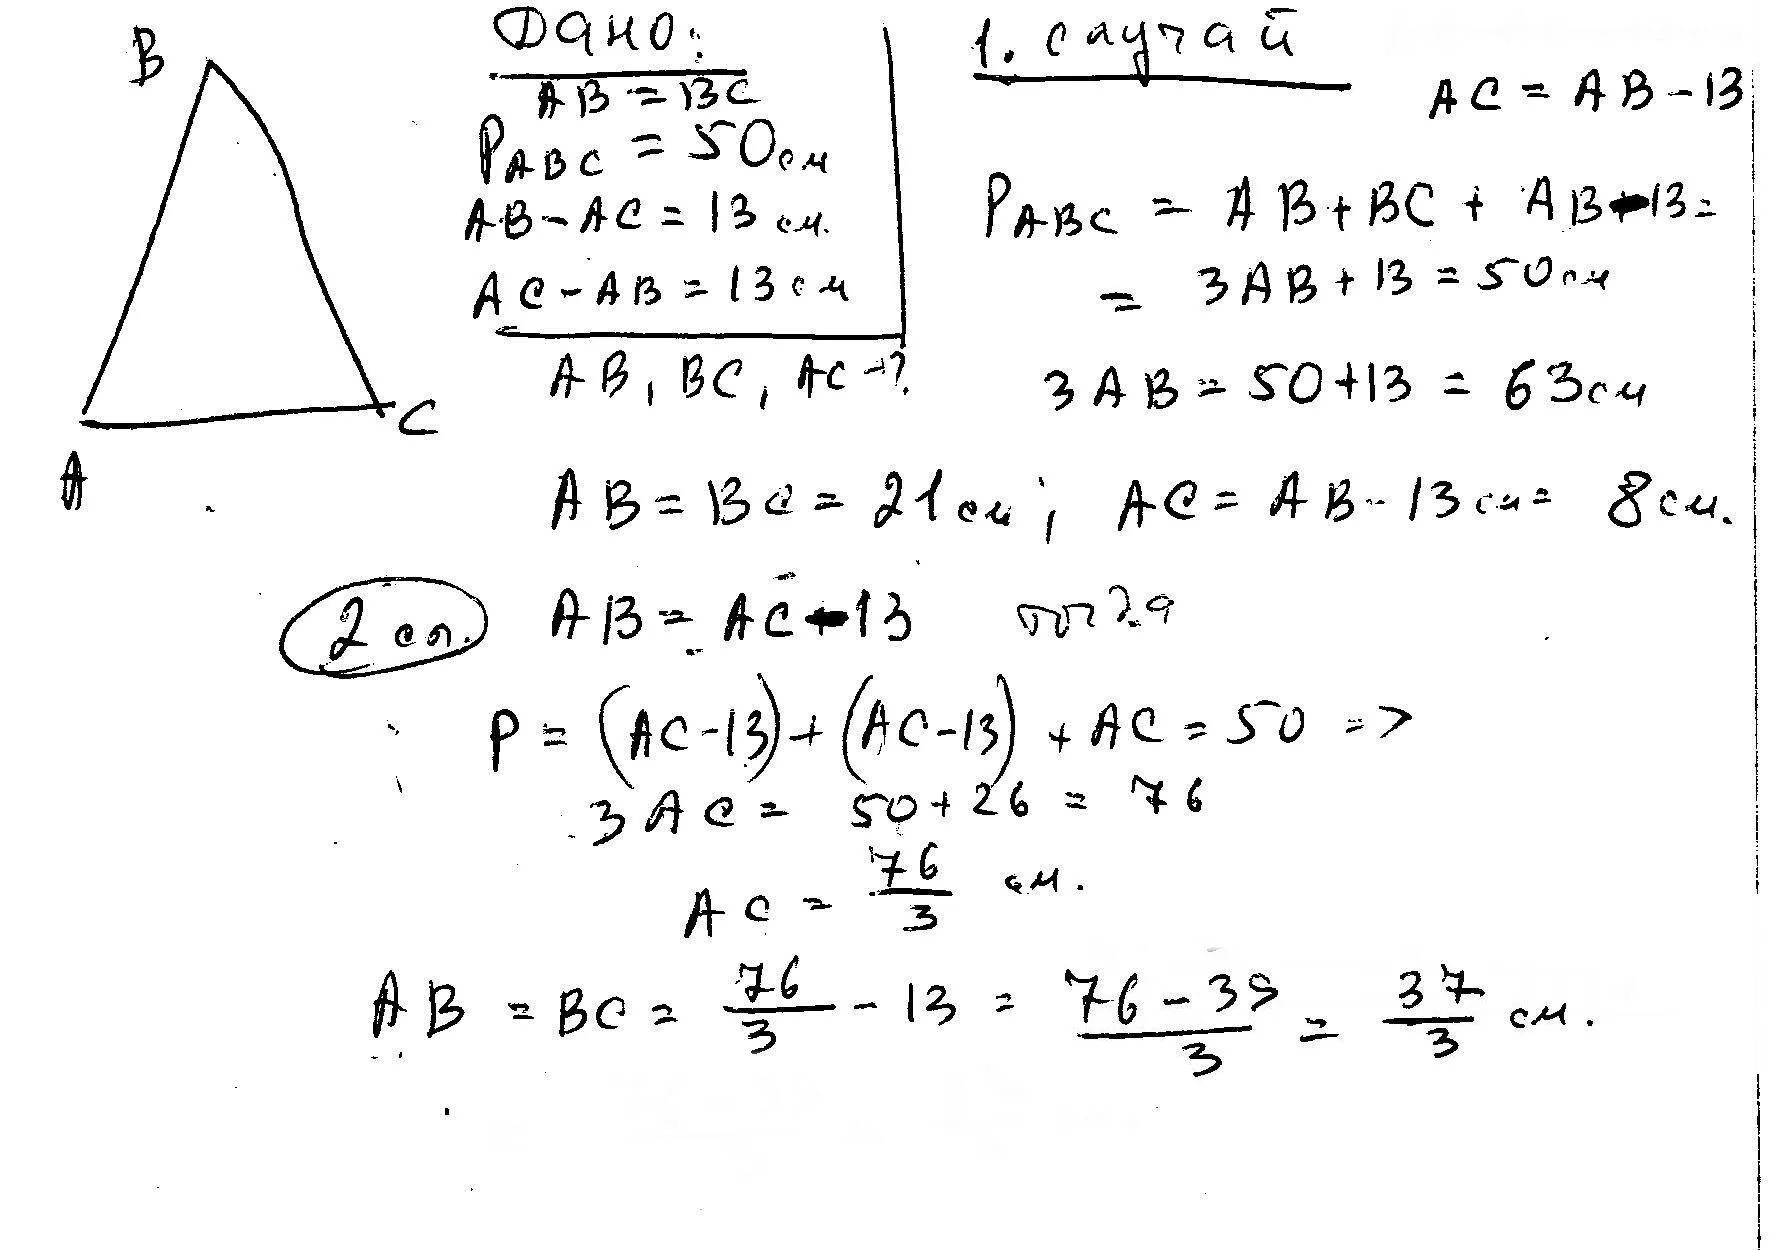 B
A
C
Дано:
AB = BC
P ABC = 50 см
AB - AC = 13 см.
AC - AB = 13 см
AB, BC, AC - ?
1. случай
AC = AB - 13
P ABC = AB + BC + AB - 13 =
= 3AB + 13 = 50 см
3AB = 50 + 13 = 63 см
AB = BC = 21 см; AC = AB - 13 см = 8 см.
2 сл. AB = AC - 13 тогда
P = (AC - 13) + (AC - 13) + AC = 50 =>
3AC = 50 + 26 = 76
AC = 76/3 см.
AB = BC = 76/3 - 13 = (76 - 39)/3 = 37/3 см.